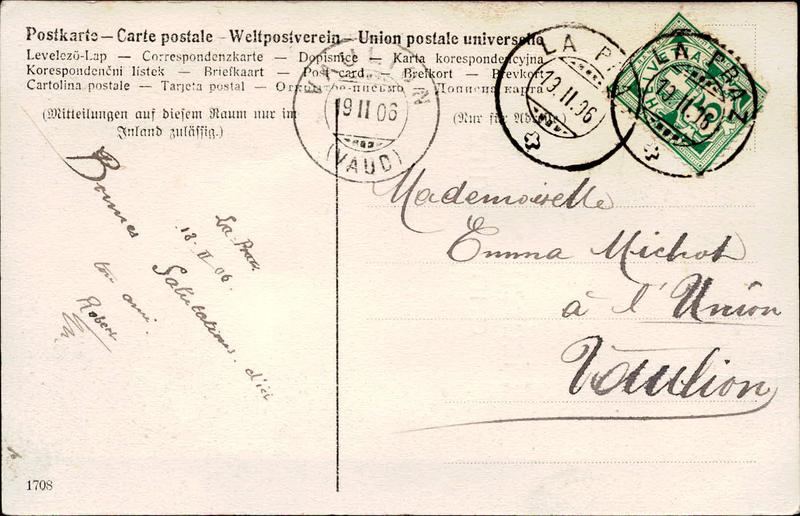 Postkarte – Carte postale – Weltpostverein – Union postale universelle
Levelező-Lap — Correspondenzkarte — Dopisnice — Karta korespondencyjna
Korespondenční lístek — Briefkaart — Post card — Brefkort — Brevkort
Cartolina postale — Tarjeta postal — Открытое письмо — Дописна карта
(Mitteilungen auf diesem Raum nur im
Inland zulässig.)
(Nur für Adresse.)
VAULION
19 II 06
(VAUD)
LA PRAZ
19.II.06
LA PRAZ
19.II.06
HELVETIA
5
La Praz.
18 II 06.
Bonnes
Salutations d'ici
ton ami.
Robert
Mademoiselle
Emma Michot
à l'Union
Vaulion
1708